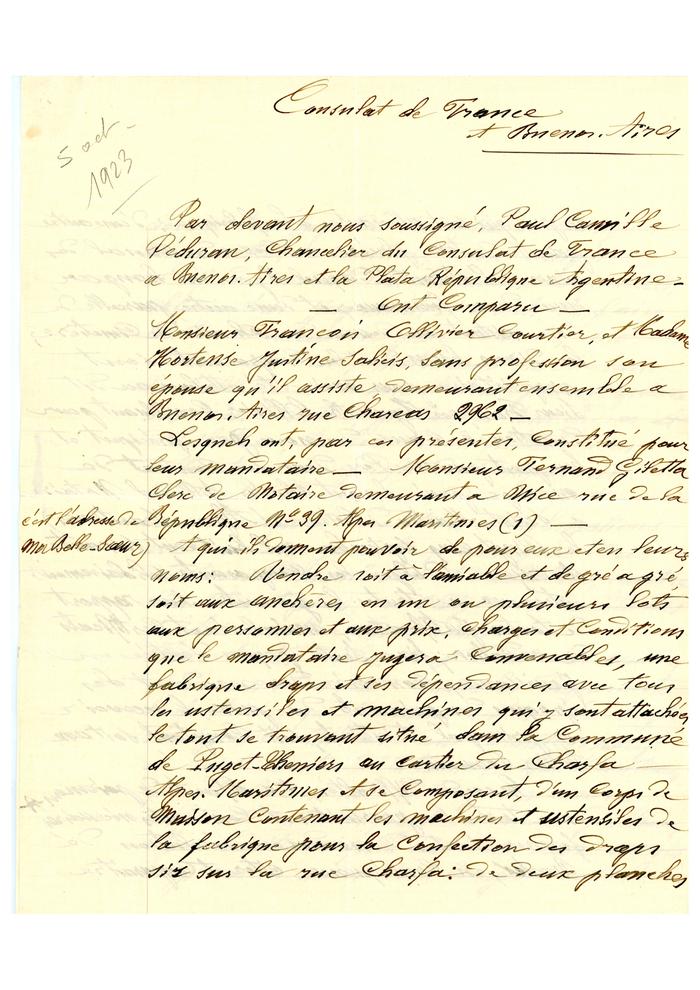 Consulat de France
A Buenos. Aires
5 oct
1923
Par devant nous soussigné, Paul Camille
Péduran, Chancelier du Consulat de France
a Buenos. Aires et la Plata République Argentine-
— Ont Comparu —
Monsieur François Ollivier Courtier, et Madame
Hortense Justine Salicis, sans profession son
epouse qu'il assiste demeurant ensemble a
Buenos. Aires rue Charcas 2962 —
Lesquels ont, par ces présentes, Constitué pour
leur mandataire — Monsieur Fernand Giletta
Clerc de Notaire demeurant a Nice rue de la
République Nº 39. Alpes Maritimes (1) —
c'est l'adresse de
Mon Belle-Soeur)
A qui ils donnent pouvoir de pour eux et en leurs
noms: Vendre soit à l'amiable et de gré a gré
soit aux anchères en un ou plusieurs lots
aux personnes et aux prix, charges et Conditions
que le mandataire jugera Convenables, une
fabrique draps et ses dépendances avec tous
les ustensiles et machines qui y sont attachées
le tout se trouvant situé dans la Commune
de Puget-Theniers au cartier du Charfa —
Alpes. Maritimes et se Composant, d'un Corps de
Maison Contenant les machines et ustensiles de
la fabrique pour la Confection des draps
sis sur la rue Charfa: de deux planches